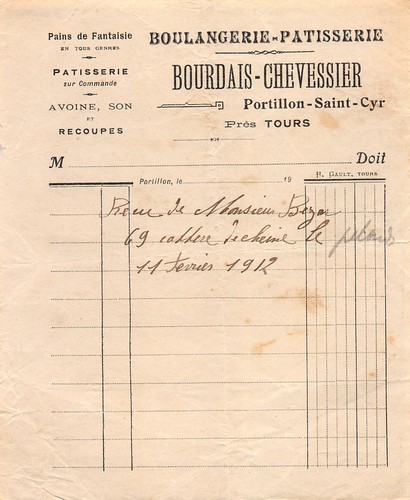 Pains de Fantaisie
EN TOUS GENRES
PATISSERIE
sur Commande
AVOINE, SON
ET
RECOUPES
BOULANGERIE-PATISSERIE
BOURDAIS-CHEVESSIER
Portillon-Saint-Cyr
Près TOURS
M Doit
Portillon, le 19 H. GAULT, TOURS
Recu de Monsieur
69 le
11 fevrier 1912